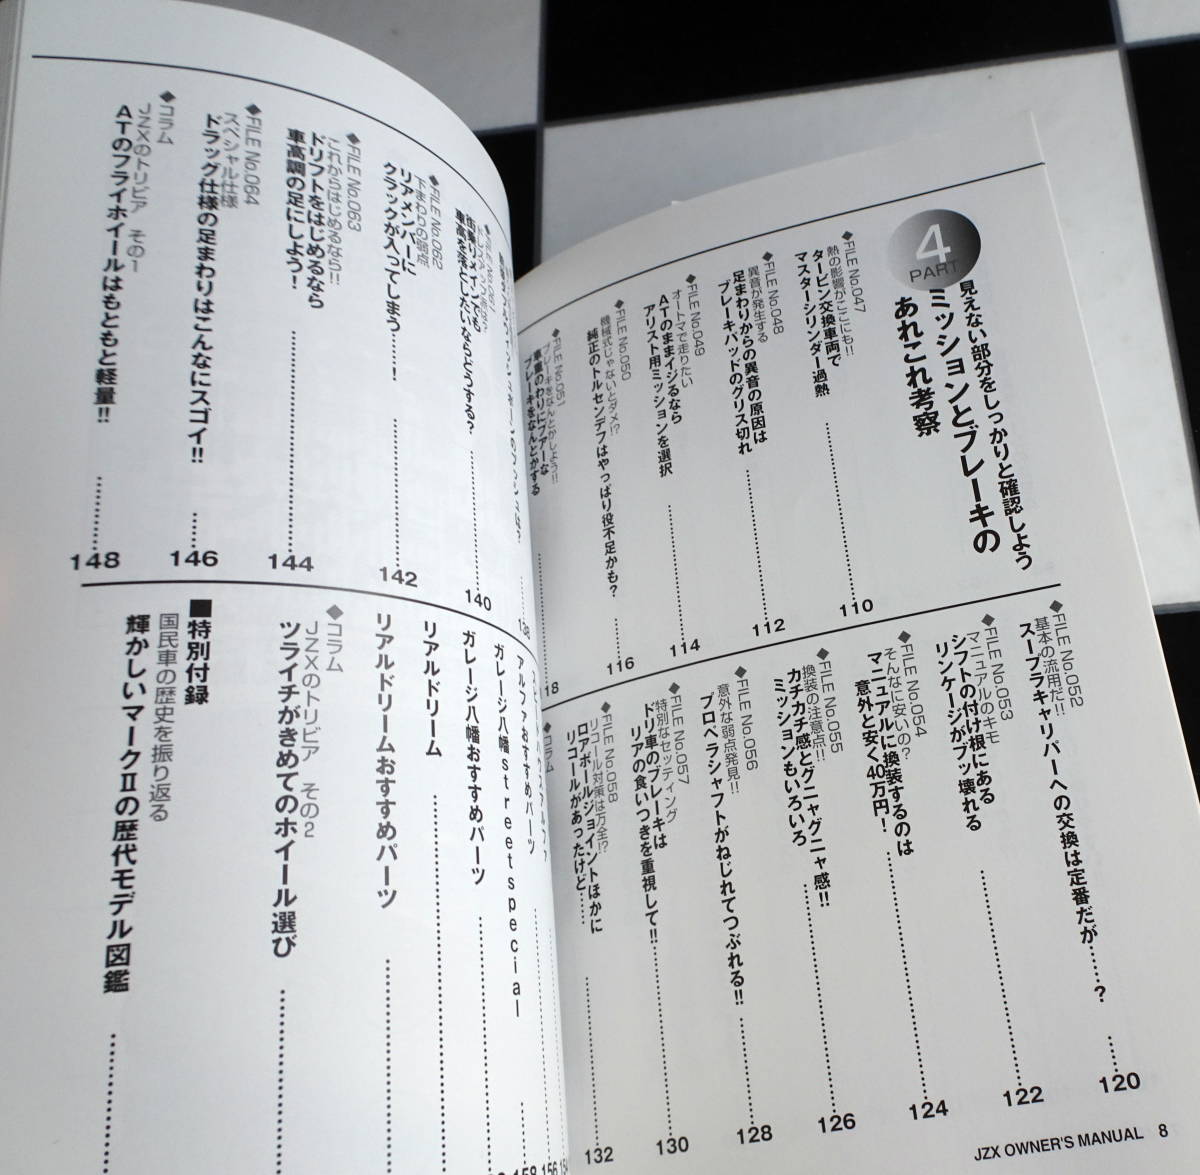 PART 4
見えない部分をしっかりと確認しよう
ミッションとブレーキの
あれこれ考察
◆FILE No.047
熱の影響がここにも!!
タービン交換車両で
マスターシリンダー過熱
110
◆FILE No.048
異音が発生する
足まわりからの異音の原因は
ブレーキパッドのグリス切れ
112
◆FILE No.049
オートマで走りたい
ATのままイジるなら
アリスト用ミッションを選択
114
◆FILE No.050
機械式じゃないとダメ!?
純正のトルセンデフはやっぱり役不足かも?
116
◆FILE No.051
ブレーキをなんとかしよう!!
車重のわりにプアーな
ブレーキをなんとかする
18
◆FILE No.052
基本の流用だ!!
スープラキャリパーへの交換は定番だが……?
120
◆FILE No.053
マニュアルのキモ
シフトの付け根にある
リンケージがブッ壊れる
122
◆FILE No.054
そんなに安いの?
マニュアルに換装するのは
意外と安く40万円!
124
◆FILE No.055
換装の注意点!!
カチカチ感とグニャグニャ感!!
ミッションもいろいろ
126
◆FILE No.056
意外な弱点発見!!
プロペラシャフトがねじれてつぶれる!!
128
◆FILE No.057
特別なセッティング
ドリ車のブレーキは
リアの食いつきを重視して!!
130
◆FILE No.058
リコール対策は万全!?
ロアボールジョイントほかに
リコールがあったけど……
132
◆コラム
JZX OWNER'S MANUAL 8
138
車高を落としたいならどうする?
140
◆FILE No.062
下まわりの弱点
リアメンバーに
クラックが入ってしまう…!
142
◆FILE No.063
これからはじめるなら!!
ドリフトをはじめるなら
車高調の足にしよう!
144
◆FILE No.064
スペシャル仕様
ドラッグ仕様の足まわりはこんなにスゴイ!!
146
◆コラム
JZXのトリビア その1
ATのフライホイールはもともと軽量!!
148
アルファおすすめパーツ
156
ガレージ八幡street special
158
ガレージ八幡おすすめパーツ
リアルドリーム
リアルドリームおすすめパーツ
◆コラム
JZXのトリビア その2
ツライチがきめてのホイール選び
■特別付録
国民車の歴史を振り返る
輝かしいマークIIの歴代モデル図鑑